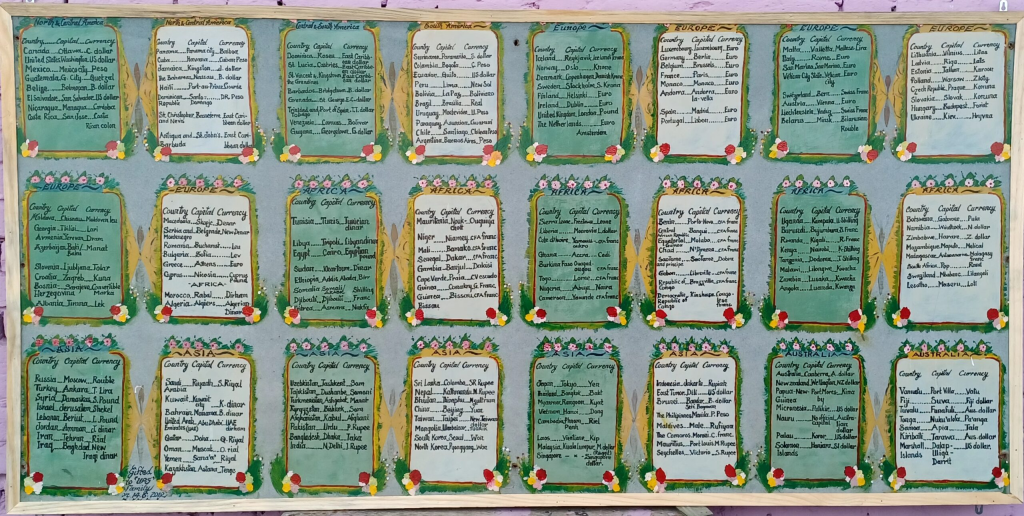 North & Central America
Country Capital Currency
Canada Ottawa C. dollar
United States Washington US dollar
Mexico Mexico city Peso
Guatemala G. City Quetzal
Belize Belmopan B. dollar
El Salvador San Salvador US dollar
Nicaragua Managua Cordoba
Costa Rica San Jose Costa
Rican colon
North & Central America
Country Capital Currency
Panama Panama city Balboa
Cuba Havana Cuban Peso
Jamaica Kingston J. dollar
The Bahamas Nassau B. dollar
Haiti Port-au-Prince Gourde
Dominican Santo DR. Peso
Republic Domingo
St. Christopher Basseterre East Cari-
and Nevis bbean dollar
Antigua and St. John's East Cari-
Barbuda bbean dollar
Central & South America
Country Capital Currency
Dominica Roseau
St. Lucia Castries
St Vincent & Kingstown
Barbados Bridgetown B. dollar
Grenada St. George E.C. dollar
Trinidad and Port of Spain T.T dollar
Tobago
Venezuela Caracas Bolivar
Guyana Georgetown G. dollar
South America
Country Capital Currency
Suriname Paramaribo S dollar
Colombia Bogota Peso
Ecuador Quito US dollar
Peru Lima New Sol
Bolivia La Paz Boliviano
Brazil Brasilia Real
Uruguay Montevideo U. Peso
Paraguay Asuncion Guarani
Chile Santiago Chilean Peso
Argentina Buenos Aires Peso
EUROPE
Country Capital Currency
Iceland Reykjavik Icelandic krona
Norway Oslo Krone
Denmark Copenhagen Danish Krone
Sweden Stockholm S. Krona
Finland Helsinki Euro
Ireland Dublin Euro
United Kingdom London Pound
The Netherlands Euro
Amsterdam
EUROPE
Country Capital Currency
Luxembourg Luxembourg Euro
Germany Berlin Euro
Belgium Brussels Euro
France Paris Euro
Monaco Monaco Euro
Andorra Andorra Euro
la-vella
Spain Madrid Euro
Portugal Lisbon Euro
EUROPE
Country Capital Currency
Malta Valletta Maltese Lira
Italy Rome Euro
San Marino San Marino Euro
Vatican City State Vatican City Euro
Switzerland Bern Swiss Franc
Austria Vienna Euro
Liechtenstein Vaduz Swiss Franc
Belarus Minsk Belarusian
Rouble
EUROPE
Country Capital Currency
Lithuania Vilnius Litas
Latvia Riga Lats
Estonia Tallinn Kroon
Poland Warsaw Zloty
Czech Republic Prague Koruna
Slovakia Slovak Koruna
Hungary Budapest Forint
Ukraine Kiev Hryvna
EUROPE
Country Capital Currency
Moldova Chisinau Moldovan leu
Georgia Tbilisi Lari
Armenia Yerevan Dram
Azerbaijan Baku Manat
Slovenia Ljubljana Tolar
Croatia Zagreb Kuna
Bosnia Sarajevo Convertible
Herzegovina Marka
Albania Tirana Lek
EUROPE
Country Capital Currency
Macedonia Skopje Denar
Serbia and Belgrade New Dinar
Montenegro
Romania Bucharest Leu
Bulgaria Sofia Lev
Greece Athens Euro
Cyprus Nicosia Cyprus
Pound
"AFRICA"
Morocco Rabat Dirham
Algeria Algiers Algerian
Dinar
AFRICA
Country Capital Currency
Tunisia Tunis Tunisian
dinar
Libya Tripoli Libyan dinar
Egypt Cairo Egyptian
Pound
Sudan Khartoum Dinar
Ethiopia Addis Ababa Birr
Somalia Shilling
Djibouti Djibouti Franc
Eritrea Asmara Nakfa
AFRICA
Country Capital Currency
Mauritania Nouak- Ouguiya
chott
Niger Niamey CFA franc
Mali Bamako CFA franc
Senegal Dakar CFA franc
Gambia Banjul Dalasi
Cape Verde Praia CV escudo
Guinea Conakry G. Franc
Guinea Bissau CFA franc
Bissau
AFRICA
Country Capital Currency
Sierra Leone Freetown Leone
Liberia Monrovia L dollar
Cote d'Ivoire Yamouss- CFA
oukro franc
Ghana Accra Cedi
Burkina Faso Ouagad CFA franc
ougou
Togo Lome CFA franc
Nigeria Abuja Naira
Cameroon Yaounde CFA franc
AFRICA
Country Capital Currency
Benin Porto-Novo CFA franc
Central Bangui
Equatorial Malabo CFA franc
Chad N'Djamena CFA franc
Sao Tome Dobra
and principe
Gabon Libreville CFA franc
Republic of Brazzaville CFA franc
Congo
Democratic Kinshasa Congo-
Republic of lese
Congo franc
AFRICA
Country Capital Currency
Uganda Kampala U Shilling
Burundi Bujumbura B Franc
Rwanda Kigali R Franc
Kenya Nairobi K Shilling
Tanzania Dodoma T Shilling
Malawi Lilongwe Kwacha
Zambia Lusaka Kwacha
Angola Luanda Kwanza
AFRICA
Country Capital Currency
Botswana Gaborone Pula
Namibia Windhoek N dollar
Zimbabwe Harare Z. dollar
Mozambique Maputo Metical
Madagascar Antananarivo Malagasy
franc
South Africa Rand
Swaziland Mbabane Lilangeli
Lesotho Maseru Loti
ASIA
Country Capital Currency
Russia Moscow Rouble
Turkey Ankara T. Lira
Syria Damascus S. Pound
Israel Jerusalem Shekel
Lebanon Beirut L. Pound
Jordan Amman J. dinar
Iran Tehran Rial
Iraq Baghdad New
Iraqi dinar
Gifted
to "UPS"
Family
ASIA
Country Capital Currency
Saudi Riyadh S. Riyal
Arabia
Kuwait Kuwait
city K-dinar
Bahrain Manama B. dinar
United Arab Abu Dhabi UAE
Emirates (UAE) dirham
Qatar Doha Q-Riyal
Oman Muscat O. rial
Yemen Sana'a Riyal
Kazakhstan Astana Tenge
ASIA
Country Capital Currency
Uzbekistan Tashkent Som
Tajikistan Dushanbe Somoni
Turkmenistan Ashgabat Manat
Kyrgyzstan Bishkek Som
Afghanistan Kabul Afghani
Pakistan U.rdu P. Rupee
Bangladesh Dhaka Taka
India N. Delhi I. Rupee
ASIA
Country Capital Currency
Sri Lanka Colombo SR. Rupee
Nepal Kathmandu N. Rupee
Bhutan Thimphu Ngultrum
China Beijing Yuan
Taiwan Taipei New Taiwan
dollar
Mongolia Ulanbator
South Korea Seoul Won
North Korea Pyongyang Won
ASIA
Country Capital Currency
Japan Tokyo Yen
Thailand Bangkok Baht
Vietnam Hanoi Dong
Cambodia Phnom Riel
Penh
Laos Vientiane Kip
Malaysia Kuala Lumpur
Singapore
dollar
ASIA
Country Capital Currency
Indonesia Jakarta Rupiah
East Timor Dili US dollar
Brunei Bandar B. dollar
Seri Begawan
The Philippines Manila P. Peso
Maldives Male Rufiyaa
The Comoros Moroni C. franc
Mauritius Port Louis M. Rupee
Seychelles Victoria S. Rupee
AUSTRALIA
Country Capital Currency
Australia Canberra A. dollar
New Zealand Wellington NZ dollar
Papua New Port Mores Kina
Guinea by
Micronesia Palikir US dollar
Nauru
Palau Koror US dollar
Solomon Honiara SI dollar
Islands
AUSTRALIA
Country Capital Currency
Vanuatu Port Vila Vatu
Fiji Suva Fij dollar
Tuvalu Funafuti Aus dollar
Tonga Nuku'alofa Pa'anga
Samoa Apia Tala
Kiribati Tarawa Aus dollar
Marshall Dalap- US dollar
Islands Uliga-
Darrit